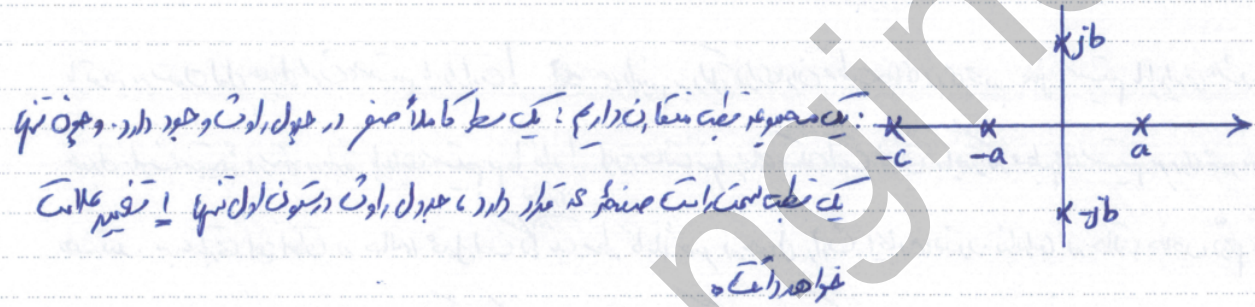 jb
: یک مجموعه قطب متقارن داریم : یک سطر کاملاً صفر در جدول راوث وجود دارد. و چون تنها
-c -a a
یک قطب سمت راست صفحه قرار دارد ، جدول راوث در ستون اول تنها 1 تغییر علامت
-jb
خواهد داشت.
ngin